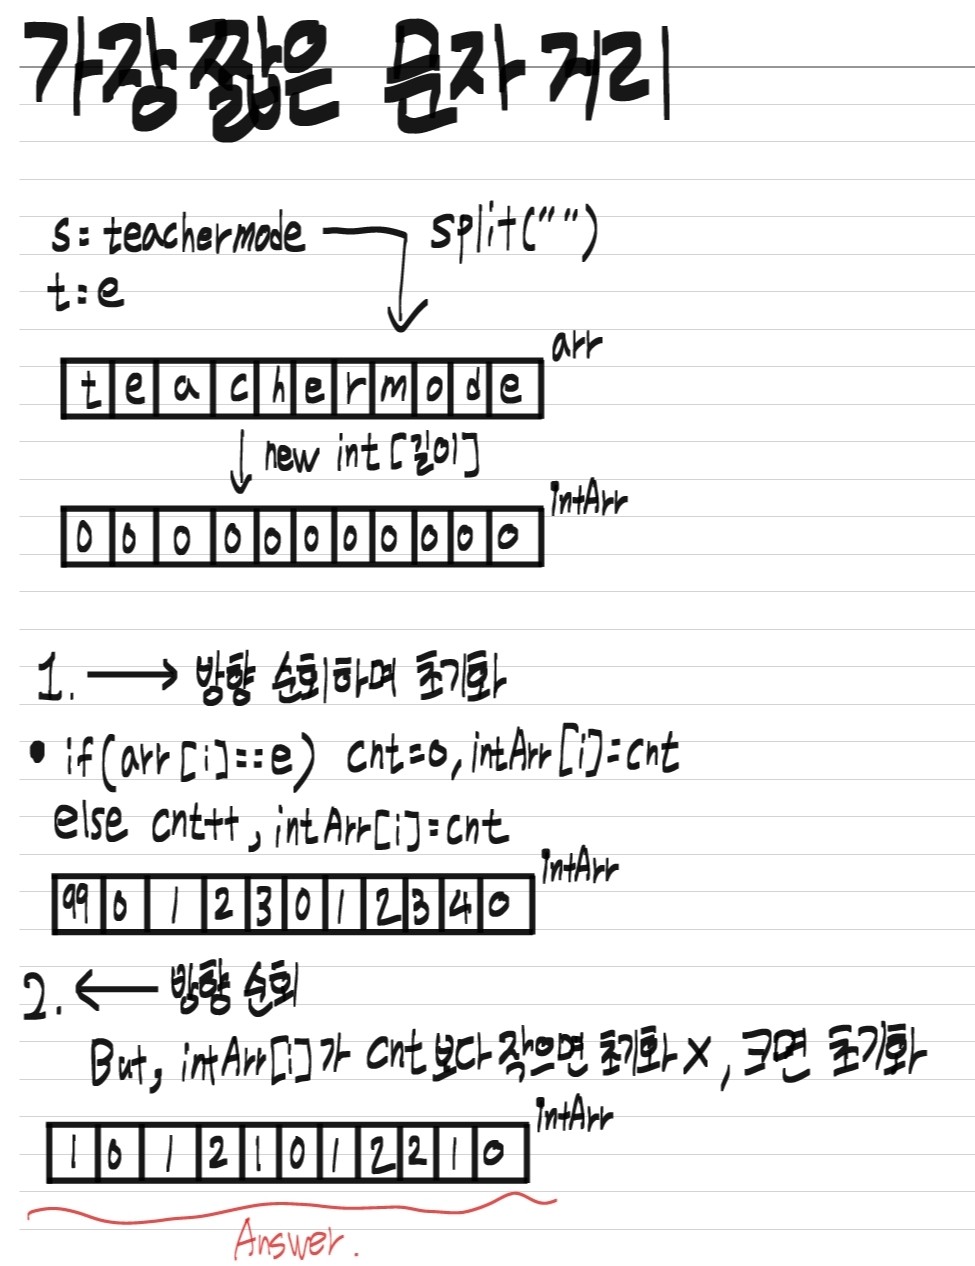 가장 짧은 문자거리
s = teachermode split("")
t = e
arr
t e a c h e r m o d e
new int [길이]
IntArr
0 0 0 0 0 0 0 0 0 0 0
1. → 방향 순회하며 초기화
• if(arr[i]==e) cnt=0, intArr[i]=cnt
else cnt++, intArr[i]=cnt
IntArr
99 0 1 2 3 0 1 2 3 4 0
2. ← 방향 순회
But, intArr[i]가 cnt보다 작으면 초기화 X, 크면 초기화
IntArr
1 0 1 2 1 0 1 2 2 1 0
Answer.